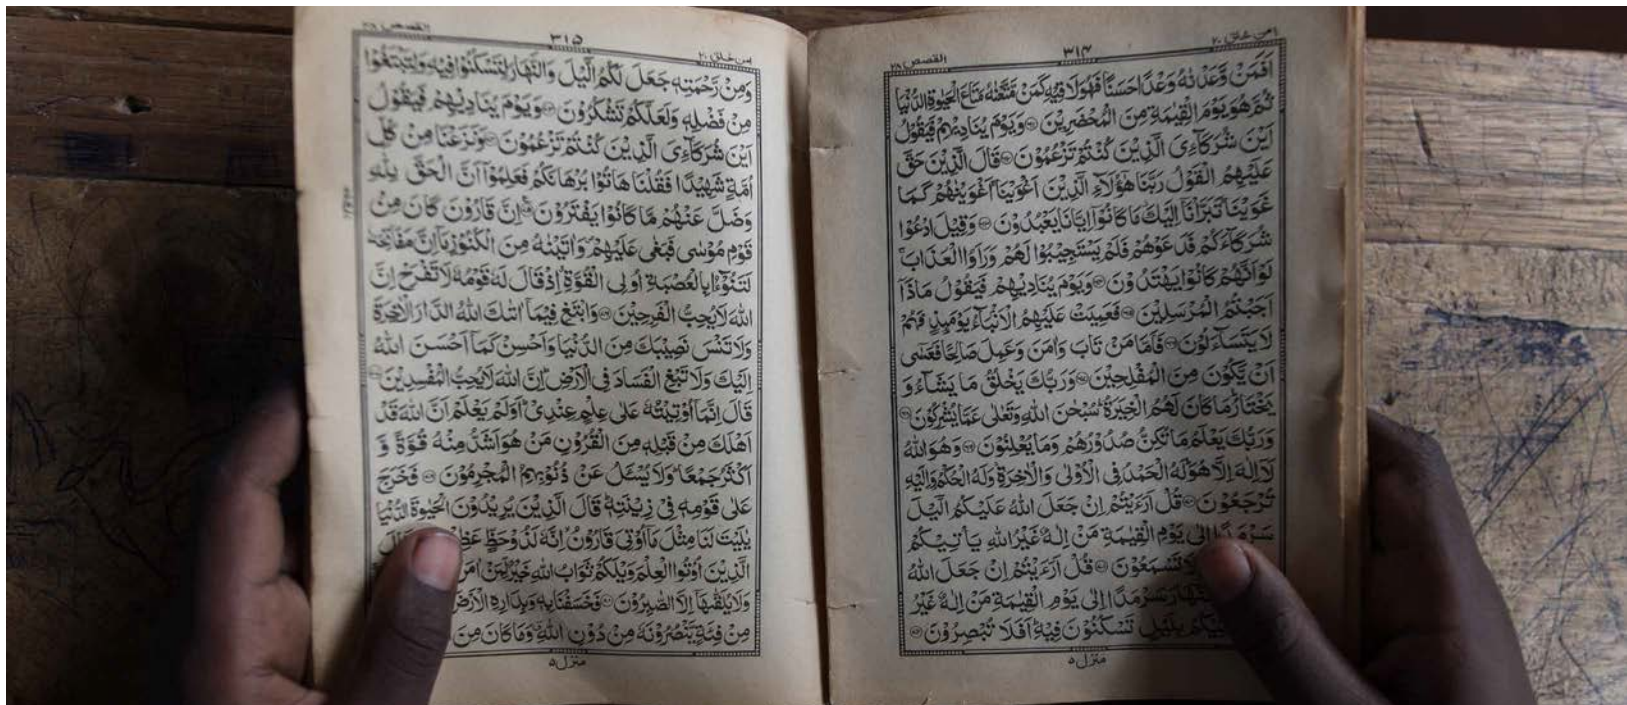 امن خلق ٢٠ ٣١٤ القصص ٢٨
اَفَمَنْ وَّعَدْنٰهُ وَعْدًا حَسَنًا فَهُوَ لَاقِيْهِ كَمَنْ مَّتَّعْنٰهُ مَتَاعَ الْحَيٰوةِ الدُّنْيَا
ثُمَّ هُوَ يَوْمَ الْقِيٰمَةِ مِنَ الْمُحْضَرِيْنَ ۝٦١ وَيَوْمَ يُنَادِيْهِمْ فَيَقُوْلُ
اَيْنَ شُرَكَآءِىَ الَّذِيْنَ كُنْتُمْ تَزْعُمُوْنَ ۝٦٢ قَالَ الَّذِيْنَ حَقَّ
عَلَيْهِمُ الْقَوْلُ رَبَّنَا هٰٓؤُلَآءِ الَّذِيْنَ اَغْوَيْنَا ۚ اَغْوَيْنٰهُمْ كَمَا
غَوَيْنَا ۚ تَبَرَّاْنَآ اِلَيْكَ ۫ مَا كَانُوْٓا اِيَّانَا يَعْبُدُوْنَ ۝٦٣ وَقِيْلَ ادْعُوْا
شُرَكَآءَكُمْ فَدَعَوْهُمْ فَلَمْ يَسْتَجِيْبُوْا لَهُمْ وَرَاَوُا الْعَذَابَ ۚ
لَوْ اَنَّهُمْ كَانُوْا يَهْتَدُوْنَ ۝٦٤ وَيَوْمَ يُنَادِيْهِمْ فَيَقُوْلُ مَاذَآ
اَجَبْتُمُ الْمُرْسَلِيْنَ ۝٦٥ فَعَمِيَتْ عَلَيْهِمُ الْاَنْۢبَآءُ يَوْمَئِذٍ فَهُمْ
لَا يَتَسَآءَلُوْنَ ۝٦٦ فَاَمَّا مَنْ تَابَ وَاٰمَنَ وَعَمِلَ صَالِحًا فَعَسٰٓى
اَنْ يَّكُوْنَ مِنَ الْمُفْلِحِيْنَ ۝٦٧ وَرَبُّكَ يَخْلُقُ مَا يَشَآءُ وَ
يَخْتَارُ ؕ مَا كَانَ لَهُمُ الْخِيَرَةُ ؕ سُبْحٰنَ اللّٰهِ وَتَعٰلٰى عَمَّا يُشْرِكُوْنَ ۝٦٨
وَرَبُّكَ يَعْلَمُ مَا تُكِنُّ صُدُوْرُهُمْ وَمَا يُعْلِنُوْنَ ۝٦٩ وَهُوَ اللّٰهُ
لَآ اِلٰهَ اِلَّا هُوَ ؕ لَهُ الْحَمْدُ فِى الْاُوْلٰى وَالْاٰخِرَةِ ۫ وَلَهُ الْحُكْمُ وَاِلَيْهِ
تُرْجَعُوْنَ ۝٧٠ قُلْ اَرَءَيْتُمْ اِنْ جَعَلَ اللّٰهُ عَلَيْكُمُ الَّيْلَ
سَرْمَدًا اِلٰى يَوْمِ الْقِيٰمَةِ مَنْ اِلٰهٌ غَيْرُ اللّٰهِ يَاْتِيْكُمْ
تَسْمَعُوْنَ ۝٧١ قُلْ اَرَءَيْتُمْ اِنْ جَعَلَ اللّٰهُ
سَرْمَدًا اِلٰى يَوْمِ الْقِيٰمَةِ مَنْ اِلٰهٌ غَيْرُ
بِلَيْلٍ تَسْكُنُوْنَ فِيْهِ ؕ اَفَلَا تُبْصِرُوْنَ ۝٧٢
منزل ٥
امن خلق ٢٠ ٣١٥ القصص ٢٨
وَمِنْ رَّحْمَتِهٖ جَعَلَ لَكُمُ الَّيْلَ وَالنَّهَارَ لِتَسْكُنُوْا فِيْهِ وَلِتَبْتَغُوْا
مِنْ فَضْلِهٖ وَلَعَلَّكُمْ تَشْكُرُوْنَ ۝٧٣ وَيَوْمَ يُنَادِيْهِمْ فَيَقُوْلُ
اَيْنَ شُرَكَآءِىَ الَّذِيْنَ كُنْتُمْ تَزْعُمُوْنَ ۝٧٤ وَنَزَعْنَا مِنْ كُلِّ
اُمَّةٍ شَهِيْدًا فَقُلْنَا هَاتُوْا بُرْهَانَكُمْ فَعَلِمُوْٓا اَنَّ الْحَقَّ لِلّٰهِ
وَضَلَّ عَنْهُمْ مَّا كَانُوْا يَفْتَرُوْنَ ۝٧٥ اِنَّ قَارُوْنَ كَانَ مِنْ
قَوْمِ مُوْسٰى فَبَغٰى عَلَيْهِمْ ۪ وَاٰتَيْنٰهُ مِنَ الْكُنُوْزِ مَآ اِنَّ مَفَاتِحَهٗ
لَتَنُوْٓءُا بِالْعُصْبَةِ اُولِى الْقُوَّةِ ۗ اِذْ قَالَ لَهٗ قَوْمُهٗ لَا تَفْرَحْ اِنَّ
اللّٰهَ لَا يُحِبُّ الْفَرِحِيْنَ ۝٧٦ وَابْتَغِ فِيْمَآ اٰتٰىكَ اللّٰهُ الدَّارَ الْاٰخِرَةَ
وَلَا تَنْسَ نَصِيْبَكَ مِنَ الدُّنْيَا وَاَحْسِنْ كَمَآ اَحْسَنَ اللّٰهُ
اِلَيْكَ وَلَا تَبْغِ الْفَسَادَ فِى الْاَرْضِ ؕ اِنَّ اللّٰهَ لَا يُحِبُّ الْمُفْسِدِيْنَ ۝٧٧
قَالَ اِنَّمَآ اُوْتِيْتُهٗ عَلٰى عِلْمٍ عِنْدِىْ ؕ اَوَلَمْ يَعْلَمْ اَنَّ اللّٰهَ قَدْ
اَهْلَكَ مِنْ قَبْلِهٖ مِنَ الْقُرُوْنِ مَنْ هُوَ اَشَدُّ مِنْهُ قُوَّةً وَّ
اَكْثَرُ جَمْعًا ؕ وَلَا يُسْـَٔلُ عَنْ ذُنُوْبِهِمُ الْمُجْرِمُوْنَ ۝٧٨ فَخَرَجَ
عَلٰى قَوْمِهٖ فِىْ زِيْنَتِهٖ ؕ قَالَ الَّذِيْنَ يُرِيْدُوْنَ الْحَيٰوةَ الدُّنْيَا
يٰلَيْتَ لَنَا مِثْلَ مَآ اُوْتِىَ قَارُوْنُ ۙ اِنَّهٗ لَذُوْ حَظٍّ
الَّذِيْنَ اُوْتُوا الْعِلْمَ وَيْلَكُمْ ثَوَابُ اللّٰهِ خَيْرٌ لِّمَنْ اٰمَنَ
وَلَا يُلَقّٰىهَآ اِلَّا الصّٰبِرُوْنَ ۝٨٠ فَخَسَفْنَا بِهٖ وَبِدَارِهِ الْاَرْضَ
مِنْ فِئَةٍ يَّنْصُرُوْنَهٗ مِنْ دُوْنِ اللّٰهِ ۗ وَمَا كَانَ مِنَ
منزل ٥